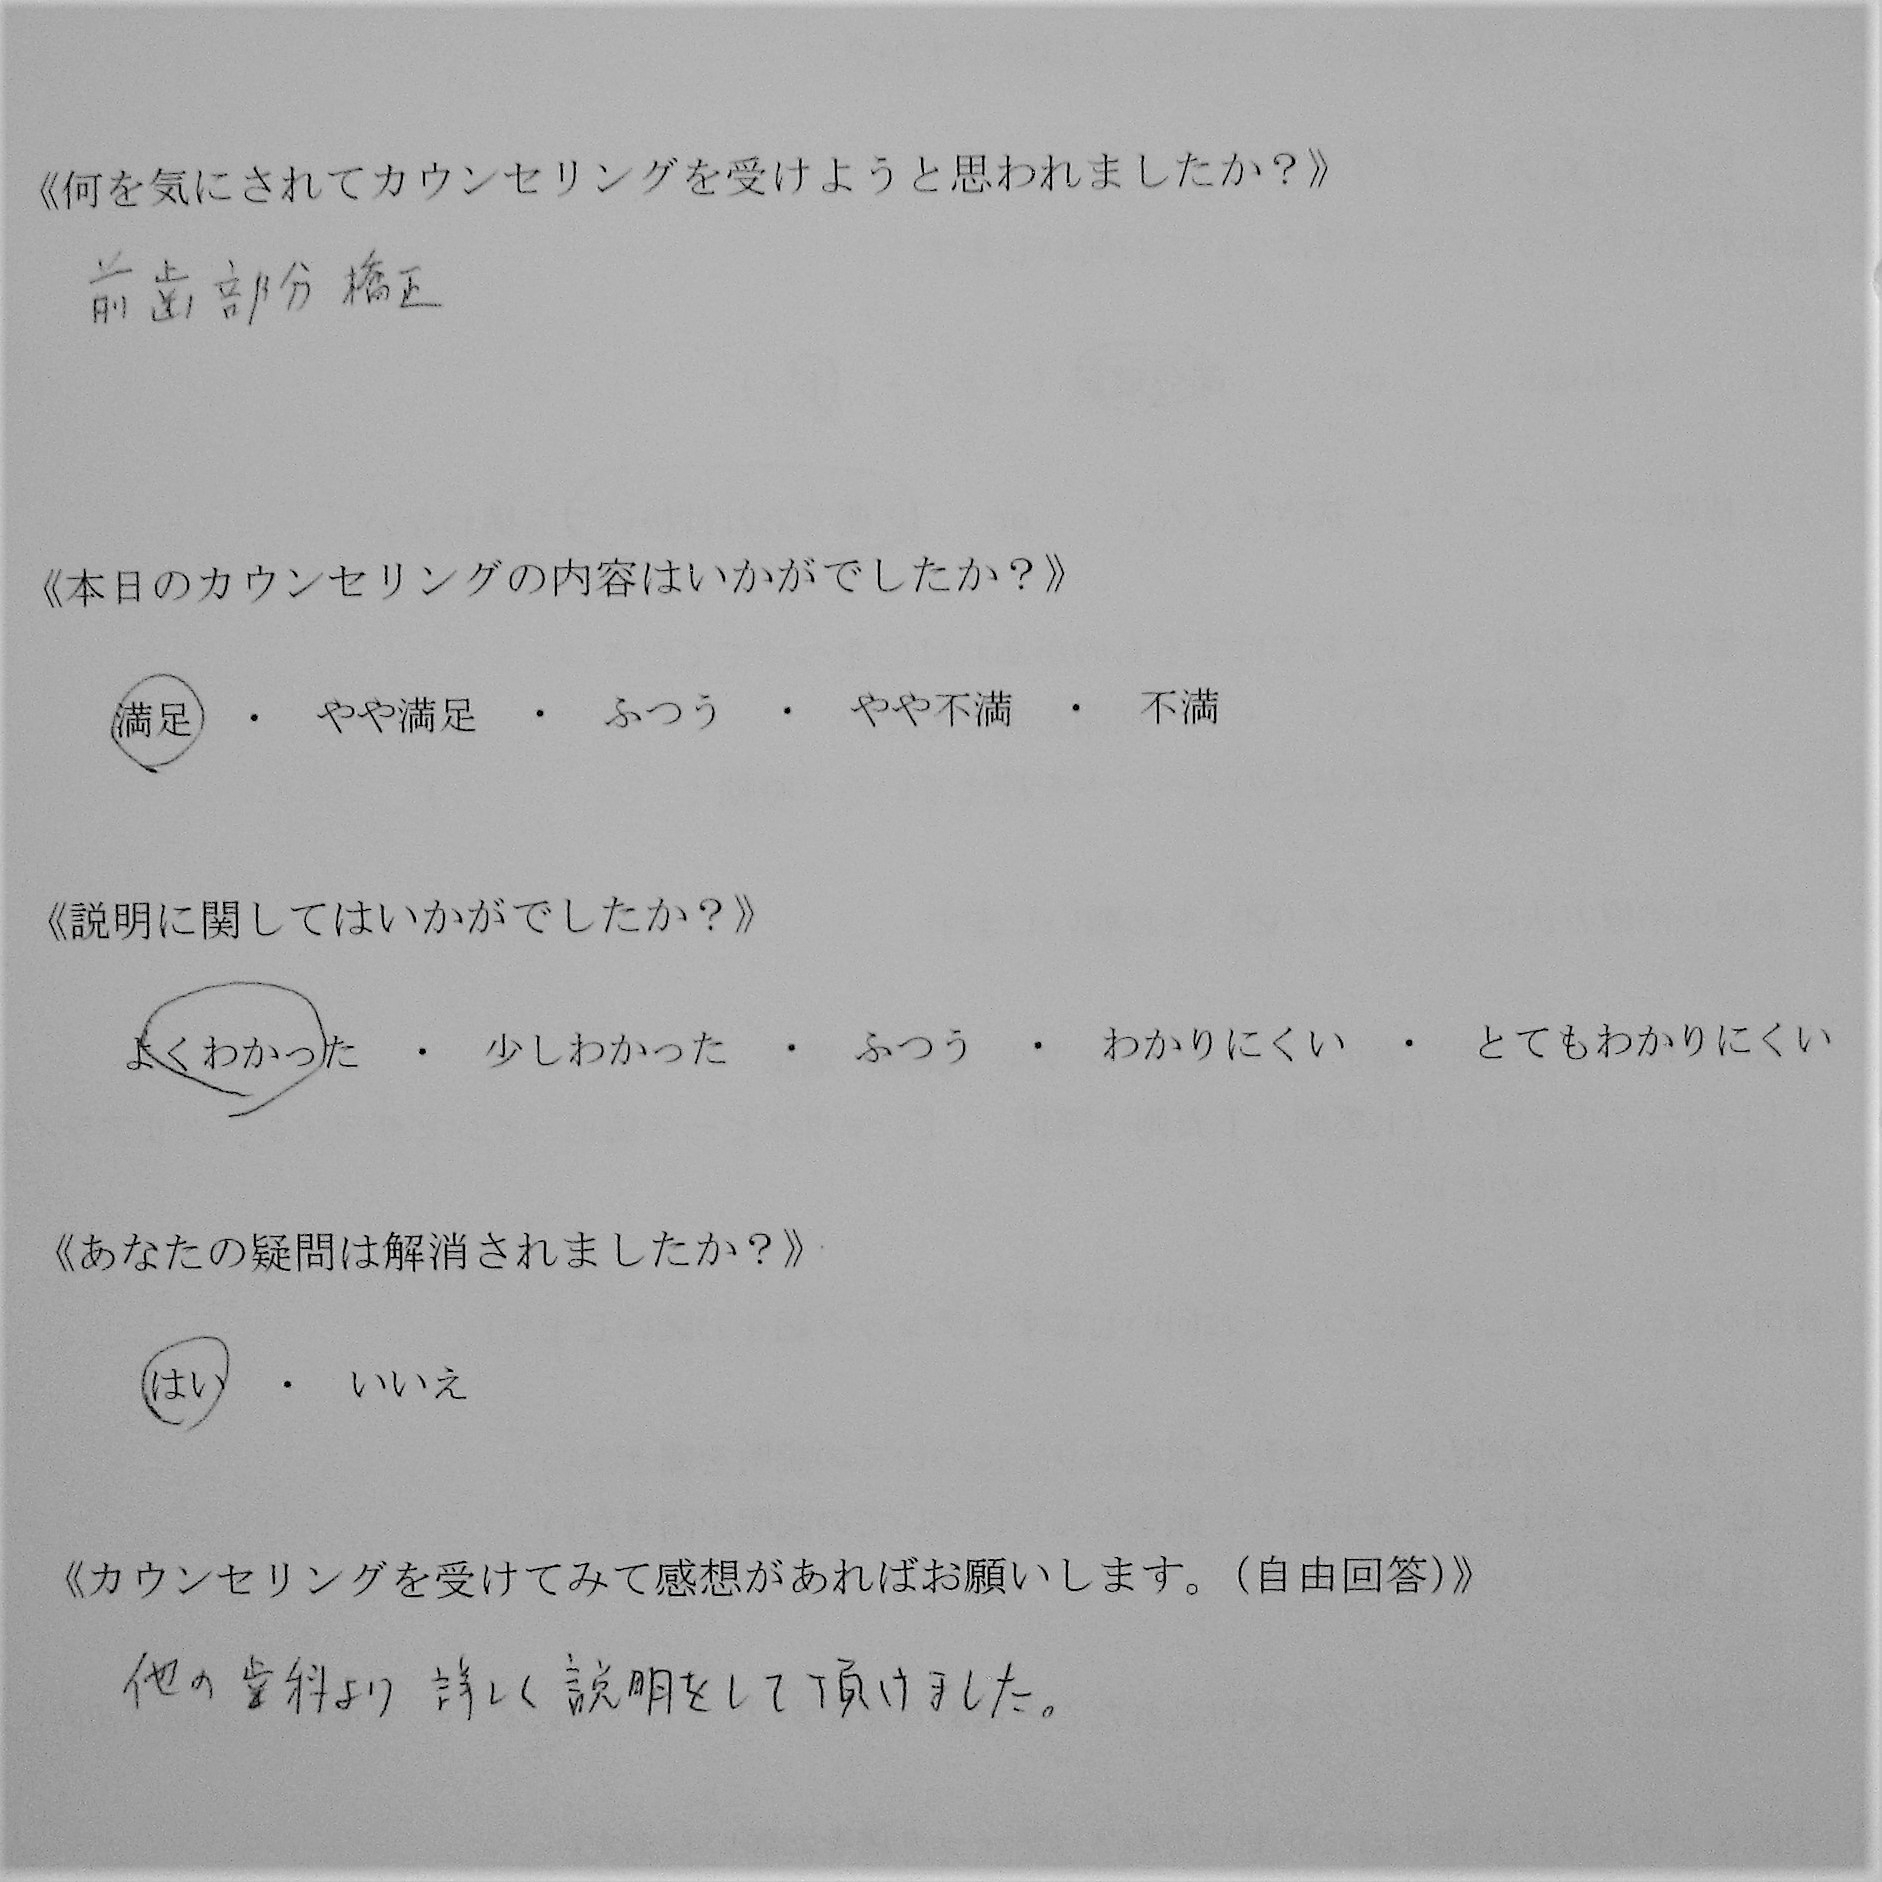 《何を気にされてカウンセリングを受けようと思われましたか？》
前歯部分橋正
《本日のカウンセリングの内容はいかがでしたか？》
満足 ・ やや満足 ・ ふつう ・ やや不満 ・ 不満
《説明に関してはいかがでしたか？》
よくわかった ・ 少しわかった ・ ふつう ・ わかりにくい ・ とてもわかりにくい
《あなたの疑問は解消されましたか？》
はい ・ いいえ
《カウンセリングを受けてみて感想があればお願いします。（自由回答）》
他の歯科より 詳しく 説明をして頂けました。